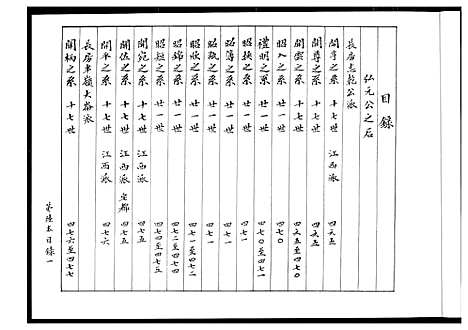 目錄
弘元公之后
長房志乾公派
開亨之系 十七世 江西派 四六五
開尊之系 十七世 四六五
開雲之系 十七世 四六五至四七〇
昭入之系 廿一世 四七〇
禮明之系 廿一世 四七〇至四七一
昭挾之系 廿一世 四七一
昭簿之系 廿一世 四七一
昭瓿之系 廿一世 四七一
昭歆之系 廿一世 四七一至四七二
昭錦之系 廿一世 四七二至四七四
昭短之系 廿一世 四七四至四七五
開宛之系 十七世 江西派 四七五
開佐之系 十七世 江西派 四七五
開平之系 十七世 江西派 四七六
長房車嶺大崙派
開柄之系 十七世 四七六至四七七
目錄一